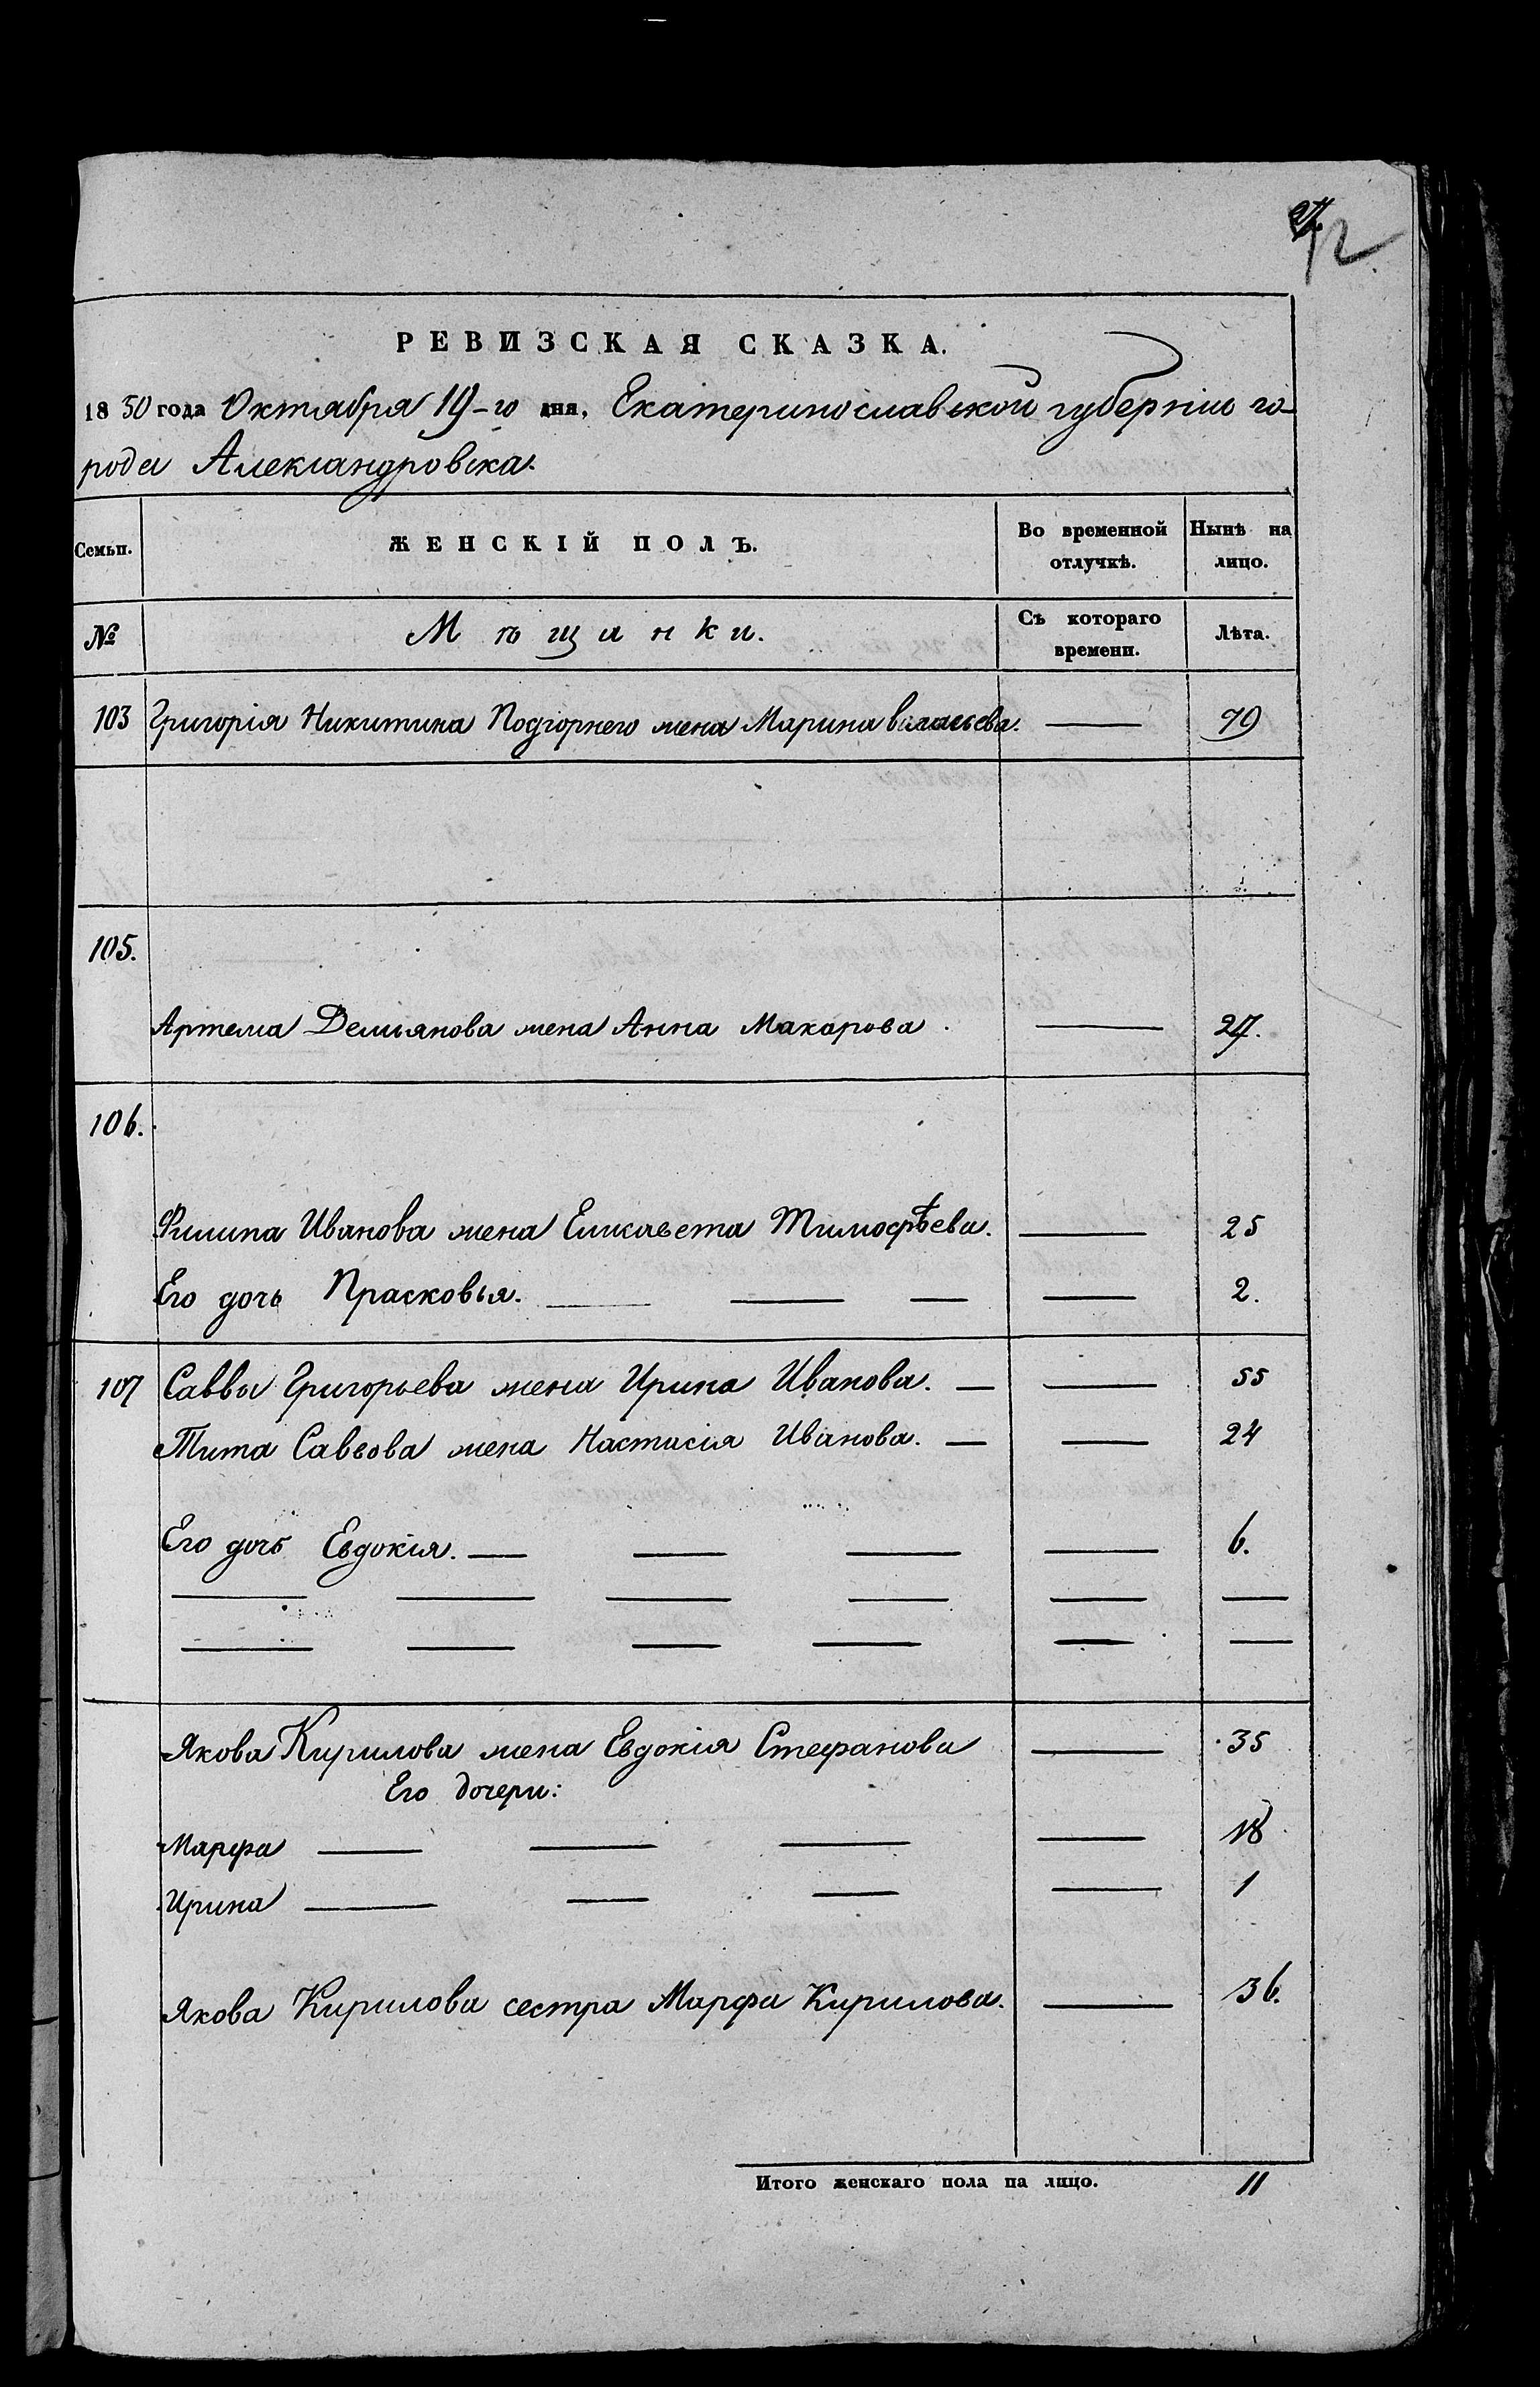 12
РЕВИЗСКАЯ СКАЗКА.
1850 года Октября 19-го дня, Екатеринославской губерніи го-
рода Александровска.
Семьи. ЖЕНСКІЙ ПОЛЪ. Во временной отлучкѣ. Нынѣ на лицо.
№ Мѣщанки. Съ котораго времени. Лѣта.
103 Григорія Никитина Подгорнего жена Марина — 79
105.
Артема Демьянова жена Анна Макарова. — 27.
106.
Филипа Иванова жена Елисавета Тимофѣева. — 25
Его дочь Прасковья. — — — — 2.
107 Саввы Григорьева жена Ирина Иванова. — — 55
Тита Саввова жена Настасія Иванова. — — 24
Его дочь Евдокія. — — — — 6.
— — — — — —
— — — — — —
Якова Кирилова жена Евдокія Стефанова — 35
Его дочери:
Марфа — — — — 18
Ирина — — — — 1
Якова Кирилова сестра Марфа Кирилова. — 36.
Итого женскаго пола на лицо. 11